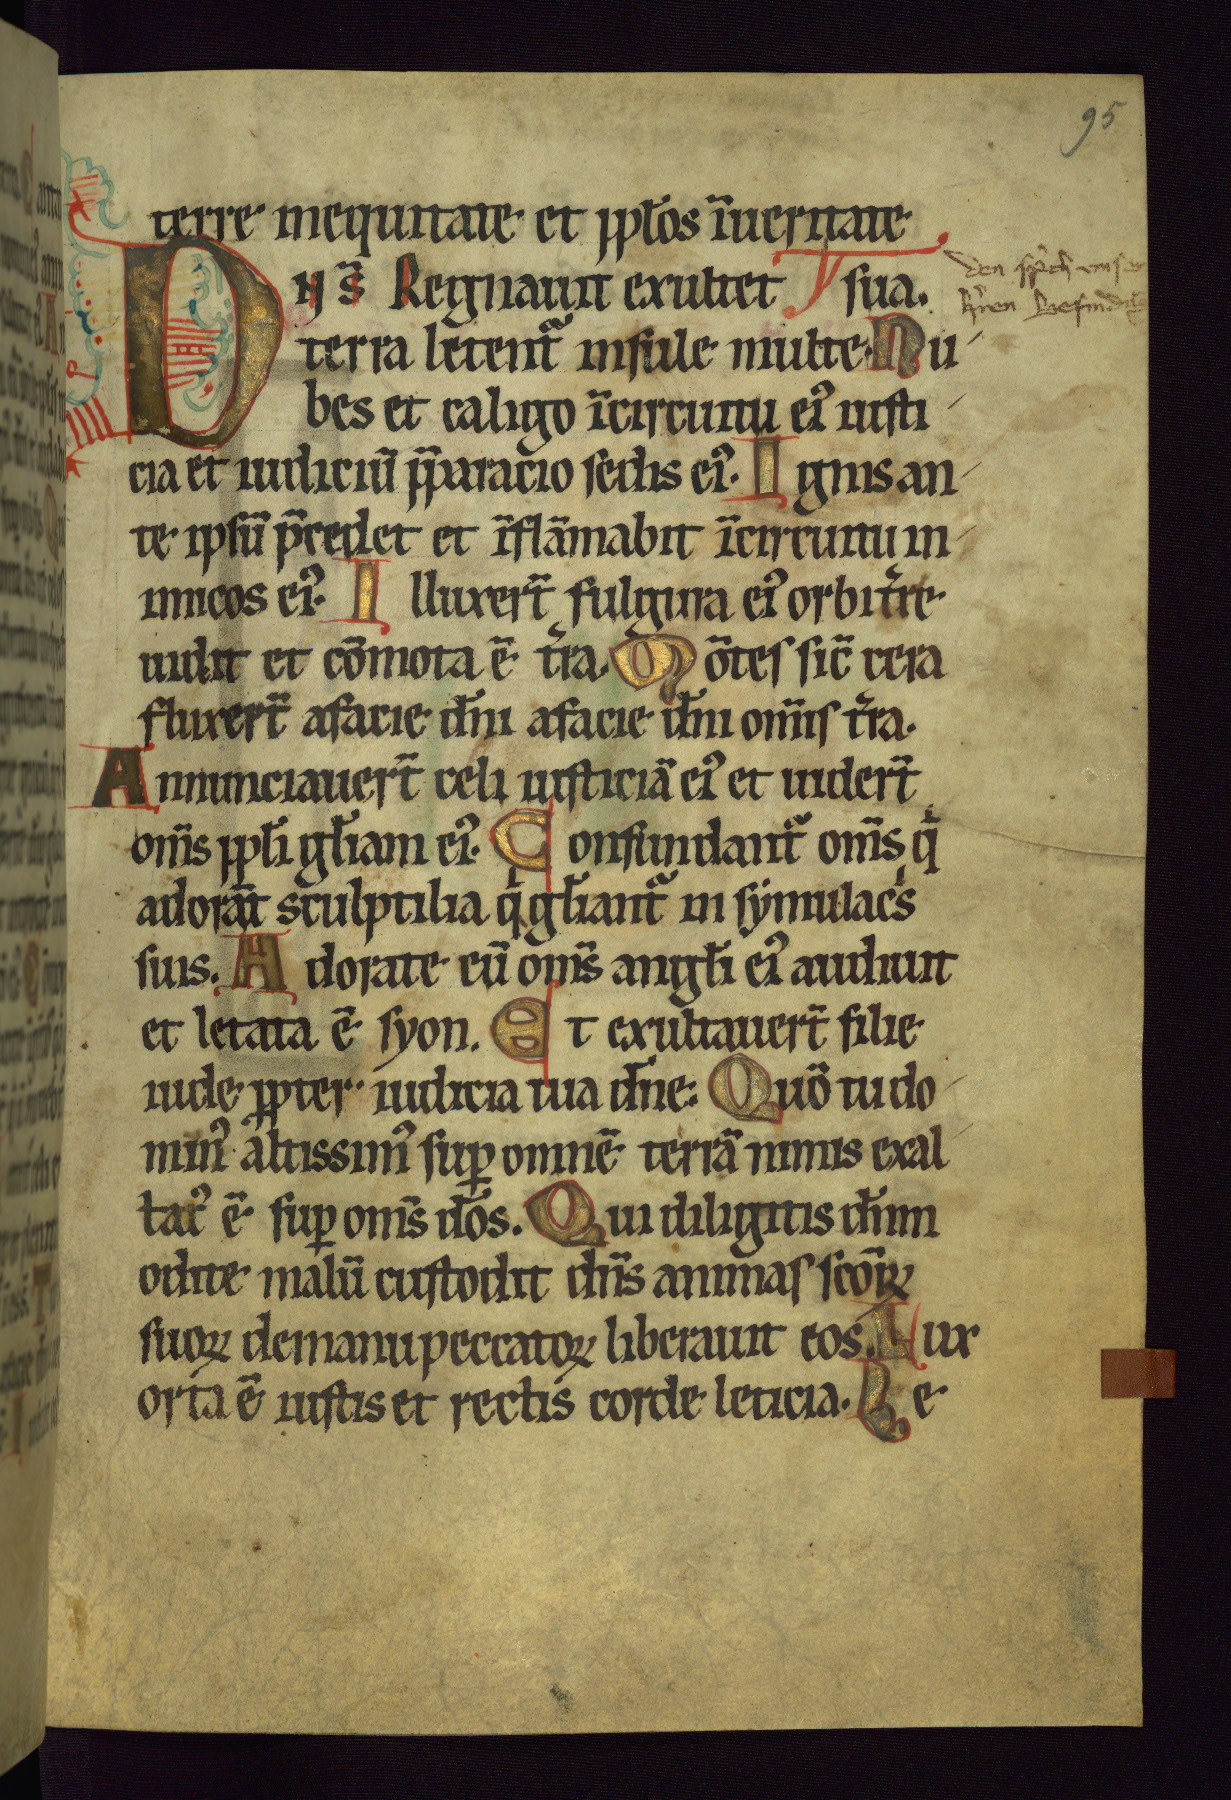 95
terre inequitate et pp̄los ĩueritate
DNS̄ Regnauit exultet sua.
den sprch vnser
h'ren
terra letent̃ insule multe. Nu
bes et caligo ĩcircuitu ei᾽ iusti
cia et iudiciũ p̄paracio sedis ei᾽. Ignis an
te ipsũ p̄cedet et ĩflãmabit ĩcircuitu in
imicos ei᾽. Illuxert̃ fulgura ei᾽ orbi t᾽re
uidit et cõmota ē t᾽ra. Mõtes sic̄ cera
fluxert̃ afacie dn̄i afacie dn̄i om̄is t᾽ra.
Annunciauert̃ celi iusticiã ei᾽ et uidert̃
om̄s pp̄li gl̄iam ei᾽. Confundant̃ om̄s q̇
adorãt sculptilia q̇ gl̄iant̃ in symulac᾽s
suis. Adorate eũ om̄s angl̄i ei᾽ audiuit
et letata ē syon. Et exultauert̃ filie
iude pp̄ter iudicia tua dn̄e: Quõ tu do
min᾽ altissim᾽ suꝑ omnē terrã nimis exal
tat᾽ ē suꝑ om̄s d̄os. Qui diligitis dn̄m
odite malũ custodit dn̄s animas sc̄oꝝ
suoꝝ demanu peccatoꝝ liberauit eos. Lux
orta ē iustis et rectis corde leticia. Le